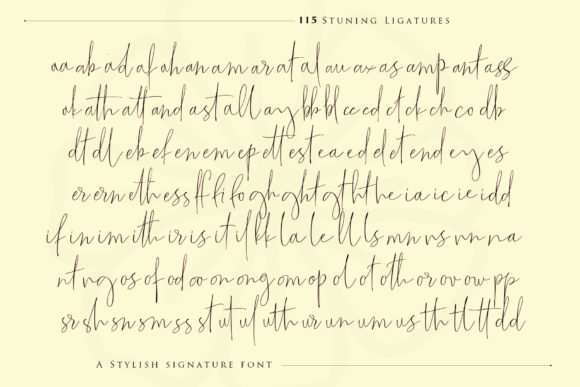 115 Stuning Ligatures
aa ab ad af ah an am ar at al au ax as amp ant ass
ak ath att and ast all ay bb bl cc ed ct ck ch co db
dt dl eb ef en em ep ett est ea ed el et end ey es
er ern eth ess ff fi fo gh ght gt th the ia ic ie idd
if in im ith ir is it il kk la le ll ls mn vs nn na
nt ng os of od oo on ong om op ol ot oth or ov ow pp
sr sh sn sm ss st ut ul uth ur un um us th tl tt dd
A Stylish signature font